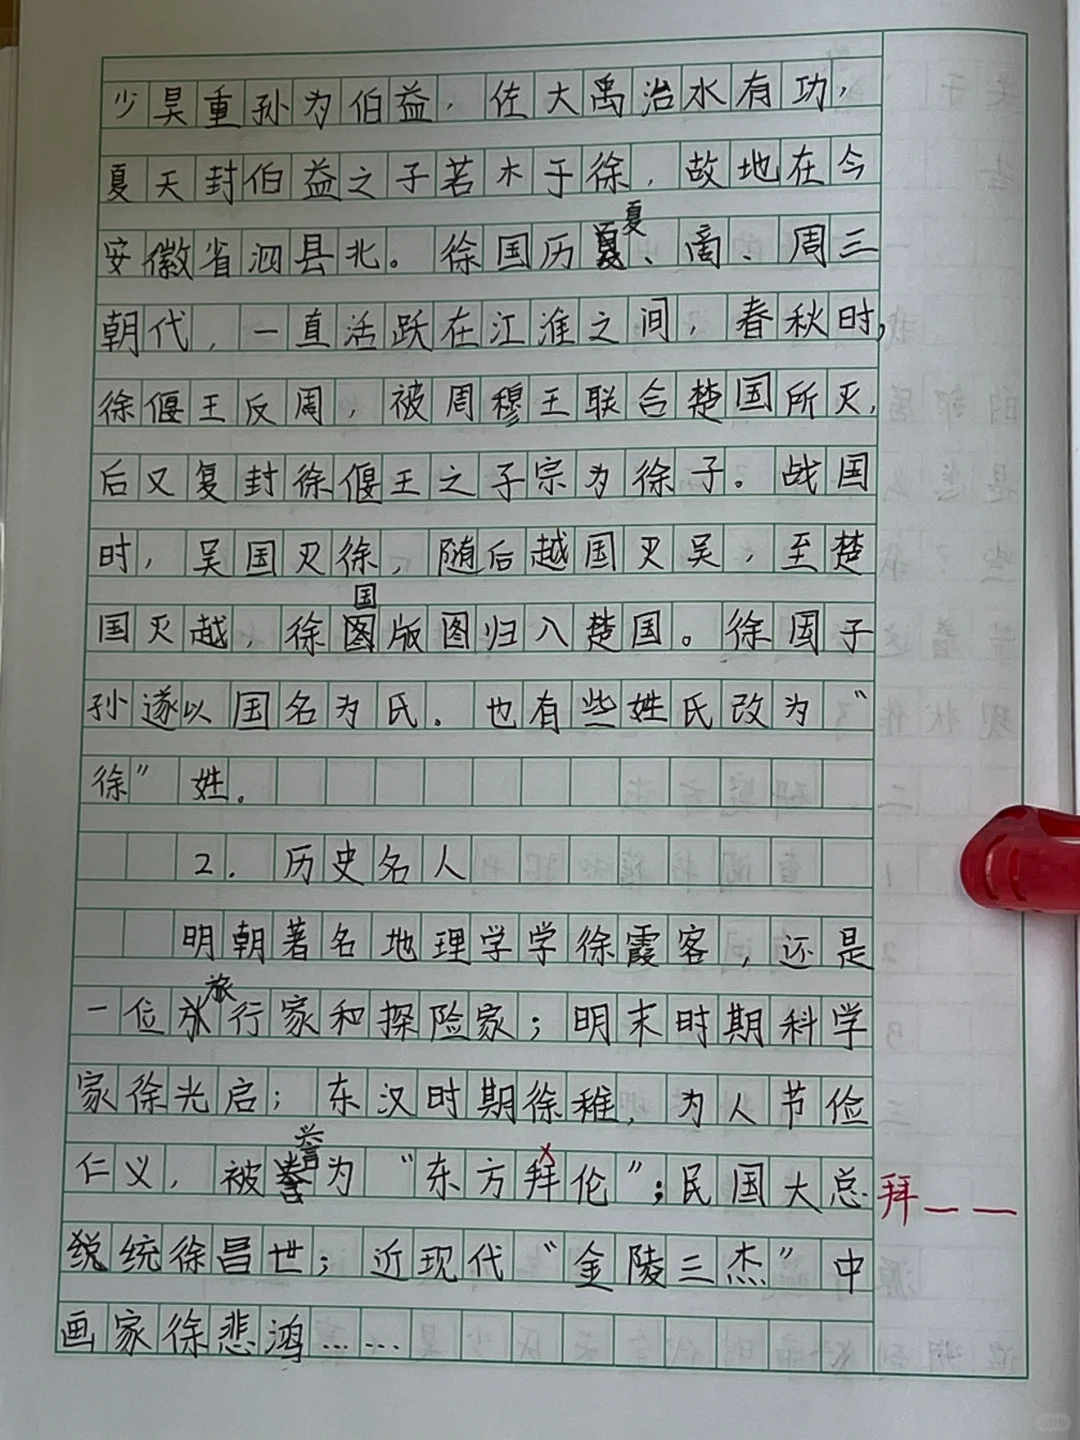 少昊重孙为伯益，佐大禹治水有功，
夏天封伯益之子若木于徐，故地在今
安徽省泗县北。徐国历夏、商、周三
朝代，一直活跃在江淮之间，春秋时，
徐偃王反周，被周穆王联合楚国所灭，
后又复封徐偃王之子宗为徐子。战国
时，吴国灭徐，随后越国灭吴，至楚
国灭越，徐国版图归八楚国。徐国子
孙遂以国名为氏。也有些姓氏改为“
徐”姓。
2．历史名人
明朝著名地理学学徐霞客，还是
一位旅行家和探险家；明末时期科学
家徐光启；东汉时期徐稚，为人节俭
仁义，被誉为“东方拜伦”；民国大总
统徐昌世；近现代“金陵三杰”中
画家徐悲鸿……
拜——